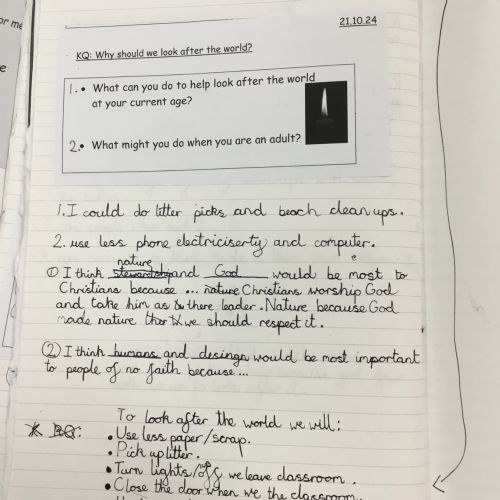 or me
e
21.10.24
KQ: Why should we look after the world?
1. • What can you do to help look after the world
at your current age?
2. • What might you do when you are an adult?
1. I could do litter picks and beach clean ups.
2. use less phone electriciserty and computer.
nature
① I think stewardship and God would be most to
Christians because ... nature Christians worship God
and take him as there leader. Nature because God
made nature we should respect it.
② I think humans and desingn would be most important
to people of no faith because ...
To look after the world we will:
• Use less paper/scrap.
• Pick up litter.
• Turn lights off we leave classroom.
• Close the door when we the classroom.